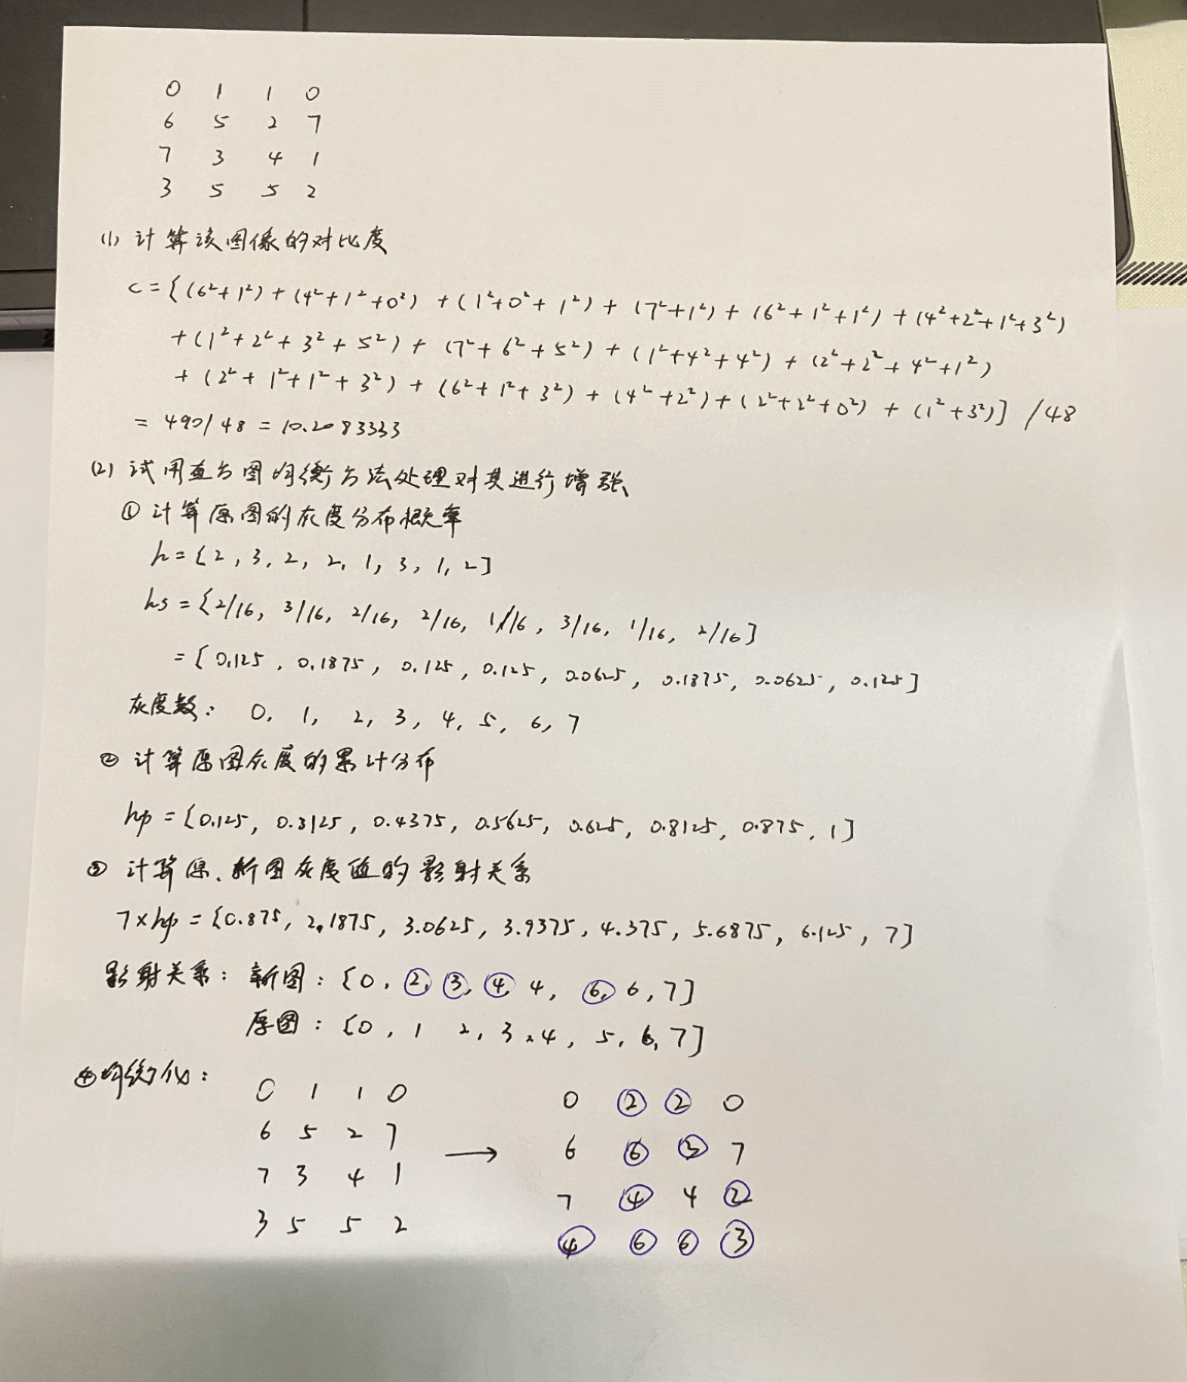 0 1 1 0
6 5 2 7
7 3 4 1
3 5 5 2
(1) 计算该图像的对比度
C={(6²+1²)+(4²+1²+0²)+(1²+0²+1²)+(7²+1²)+(6²+1²+1²)+(4²+2²+1²+3²)
+(1²+2²+3²+5²)+(7²+6²+5²)+(1²+4²+4²)+(2²+2²+4²+1²)
+(2²+1²+1²+3²)+(6²+1²+3²)+(4²+2²)+(2²+2²+0²)+(1²+3²)]/48
=490/48=10.2083333
(2) 试用直方图均衡方法处理对其进行增强
① 计算原图的灰度分布概率
h={2,3,2,2,1,3,1,2]
hs={2/16, 3/16, 2/16, 2/16, 1/16, 3/16, 1/16, 2/16]
={0.125, 0.1875, 0.125, 0.125, 0.0625, 0.1875, 0.0625, 0.125]
灰度数: 0, 1, 2, 3, 4, 5, 6, 7
② 计算原图灰度的累计分布
hp={0.125, 0.3125, 0.4375, 0.5625, 0.625, 0.8125, 0.875, 1]
③ 计算原、新图灰度值的影射关系
7×hp={0.875, 2.1875, 3.0625, 3.9375, 4.375, 5.6875, 6.125, 7]
影射关系: 新图:{0, ②, ③, ④, 4, ⑥, 6, 7]
原图:{0, 1 2, 3, 4, 5, 6, 7]
④均衡化:
0 1 1 0 0 ② ② 0
6 5 2 7 → 6 ⑥ ③ 7
7 3 4 1 7 ④ 4 ②
3 5 5 2 ④ ⑥ ⑥ ③